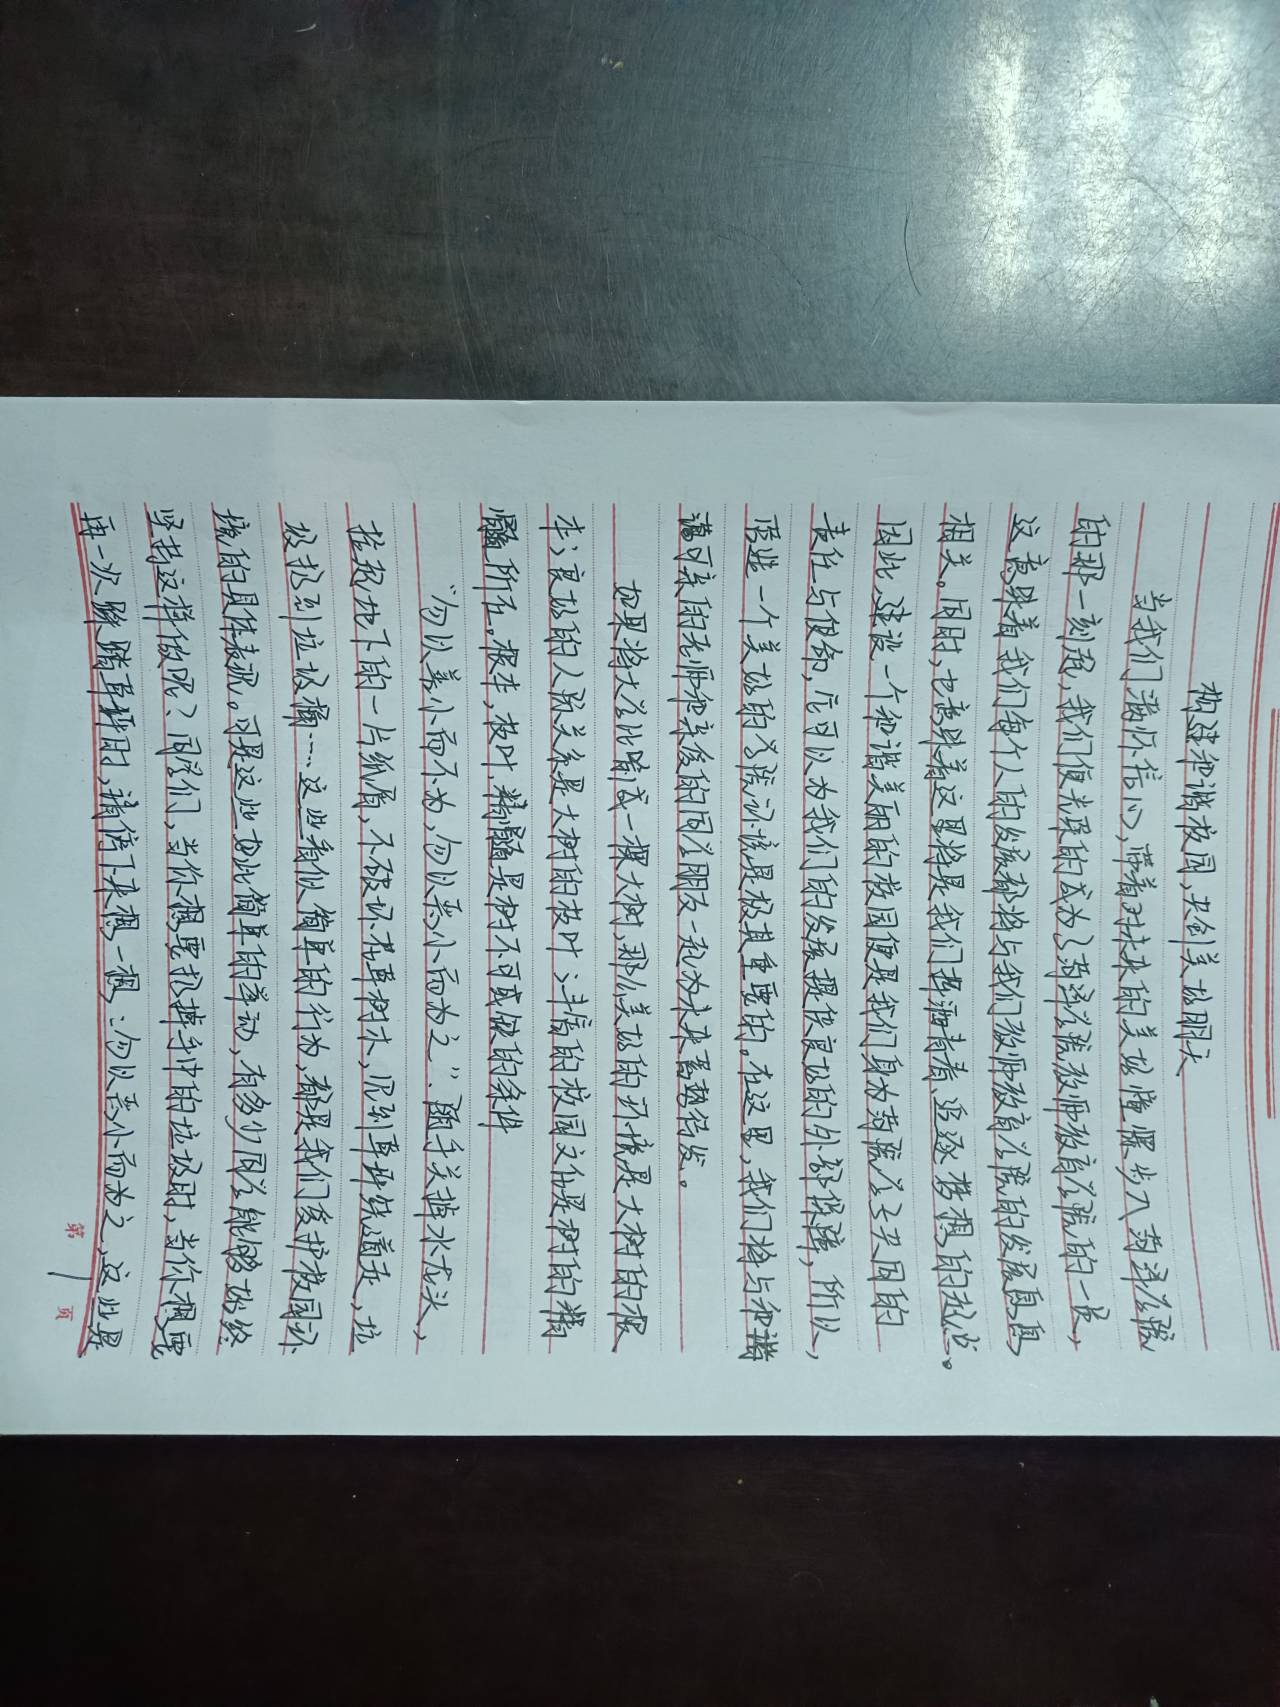 构建和谐校园,共创美好明天
当我们满怀信心,带着对未来的美好憧憬步入菏泽学院
的那一刻起,我们便光荣的成为了菏泽学院教师教育学院的一员,
这意味着我们每个人的发展都将与我们教师教育学院的发展息息
相关。同时,也意味着这里将是我们挥洒青春 追逐梦想的起点。
因此,建设一个和谐美丽的校园便是我们身为菏院学子共同的
责任与使命,它可以为我们的发展提供良好的外部保障,所以,
营造一个美好的学院认该是极其重要的。在这里,我们将与和谐
蔼可亲的老师和亲爱的同学朋友一起为未来蓄势待发。
如果将大学比喻成一棵大树,那么美好的环境是大树的根
本;良好的人际关系是大树的枝叶;丰信的校园文化是树的精
髓所在。根本,枝叶,精髓是树不可或缺的条件
“勿以善小而不为,勿以恶小而为之”.随手关掉水龙头,
捡起地下的一片纸屑,不破坏花草树木,见到草坪绕道走,垃
圾扔到垃圾桶……这些看似简单的行为,都是我们爱护校园环
境的具体表现。可是这些如此简单的举动,有多少同学能够始终
坚持这样做呢?同学们,当你想要扔掉手中的垃圾时,当你想要
再一次踩踏草坪时,请停下来想一想:勿以恶小而为之,这世界
第 1 页